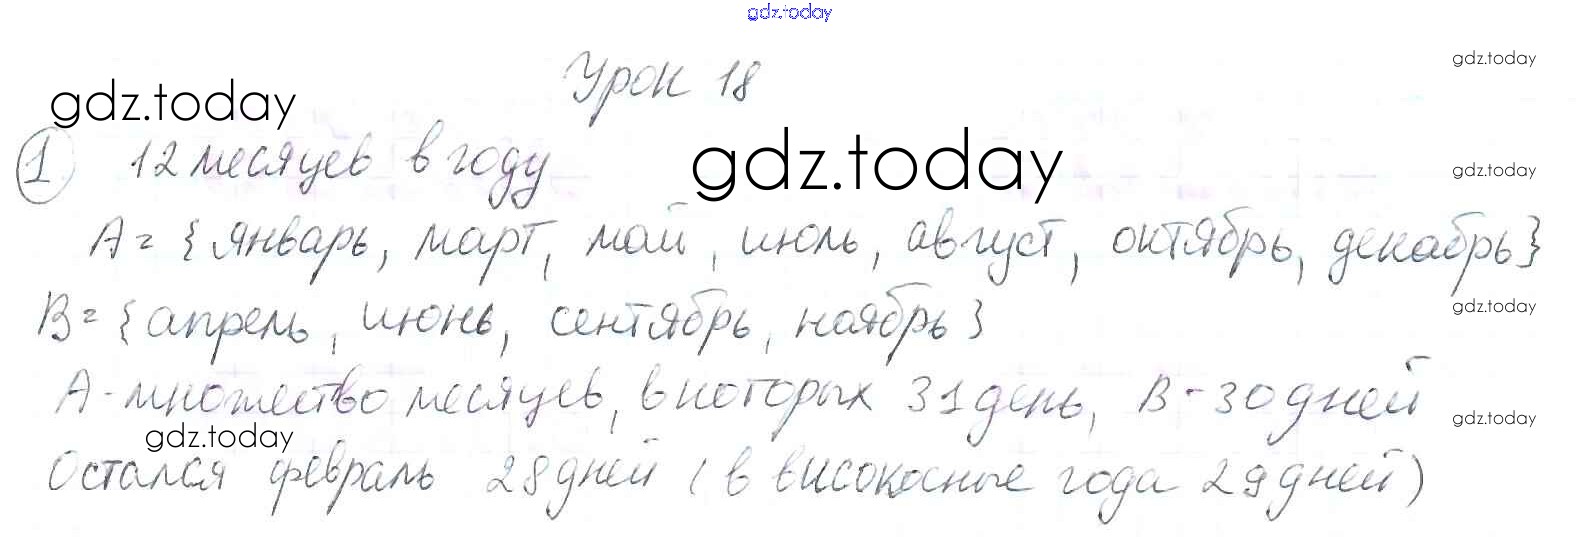 gdz.today
Урок 18
gdz.today
gdz.today
1 12 месяцев в году
gdz.today
gdz.today
A = {январь, март, май, июль, август, октябрь, декабрь}
B = {апрель, июнь, сентябрь, ноябрь}
gdz.today
A - множество месяцев, в которых 31 день, B - 30 дней
gdz.today
gdz.today
Остался февраль 28 дней (в високосные года 29 дней)